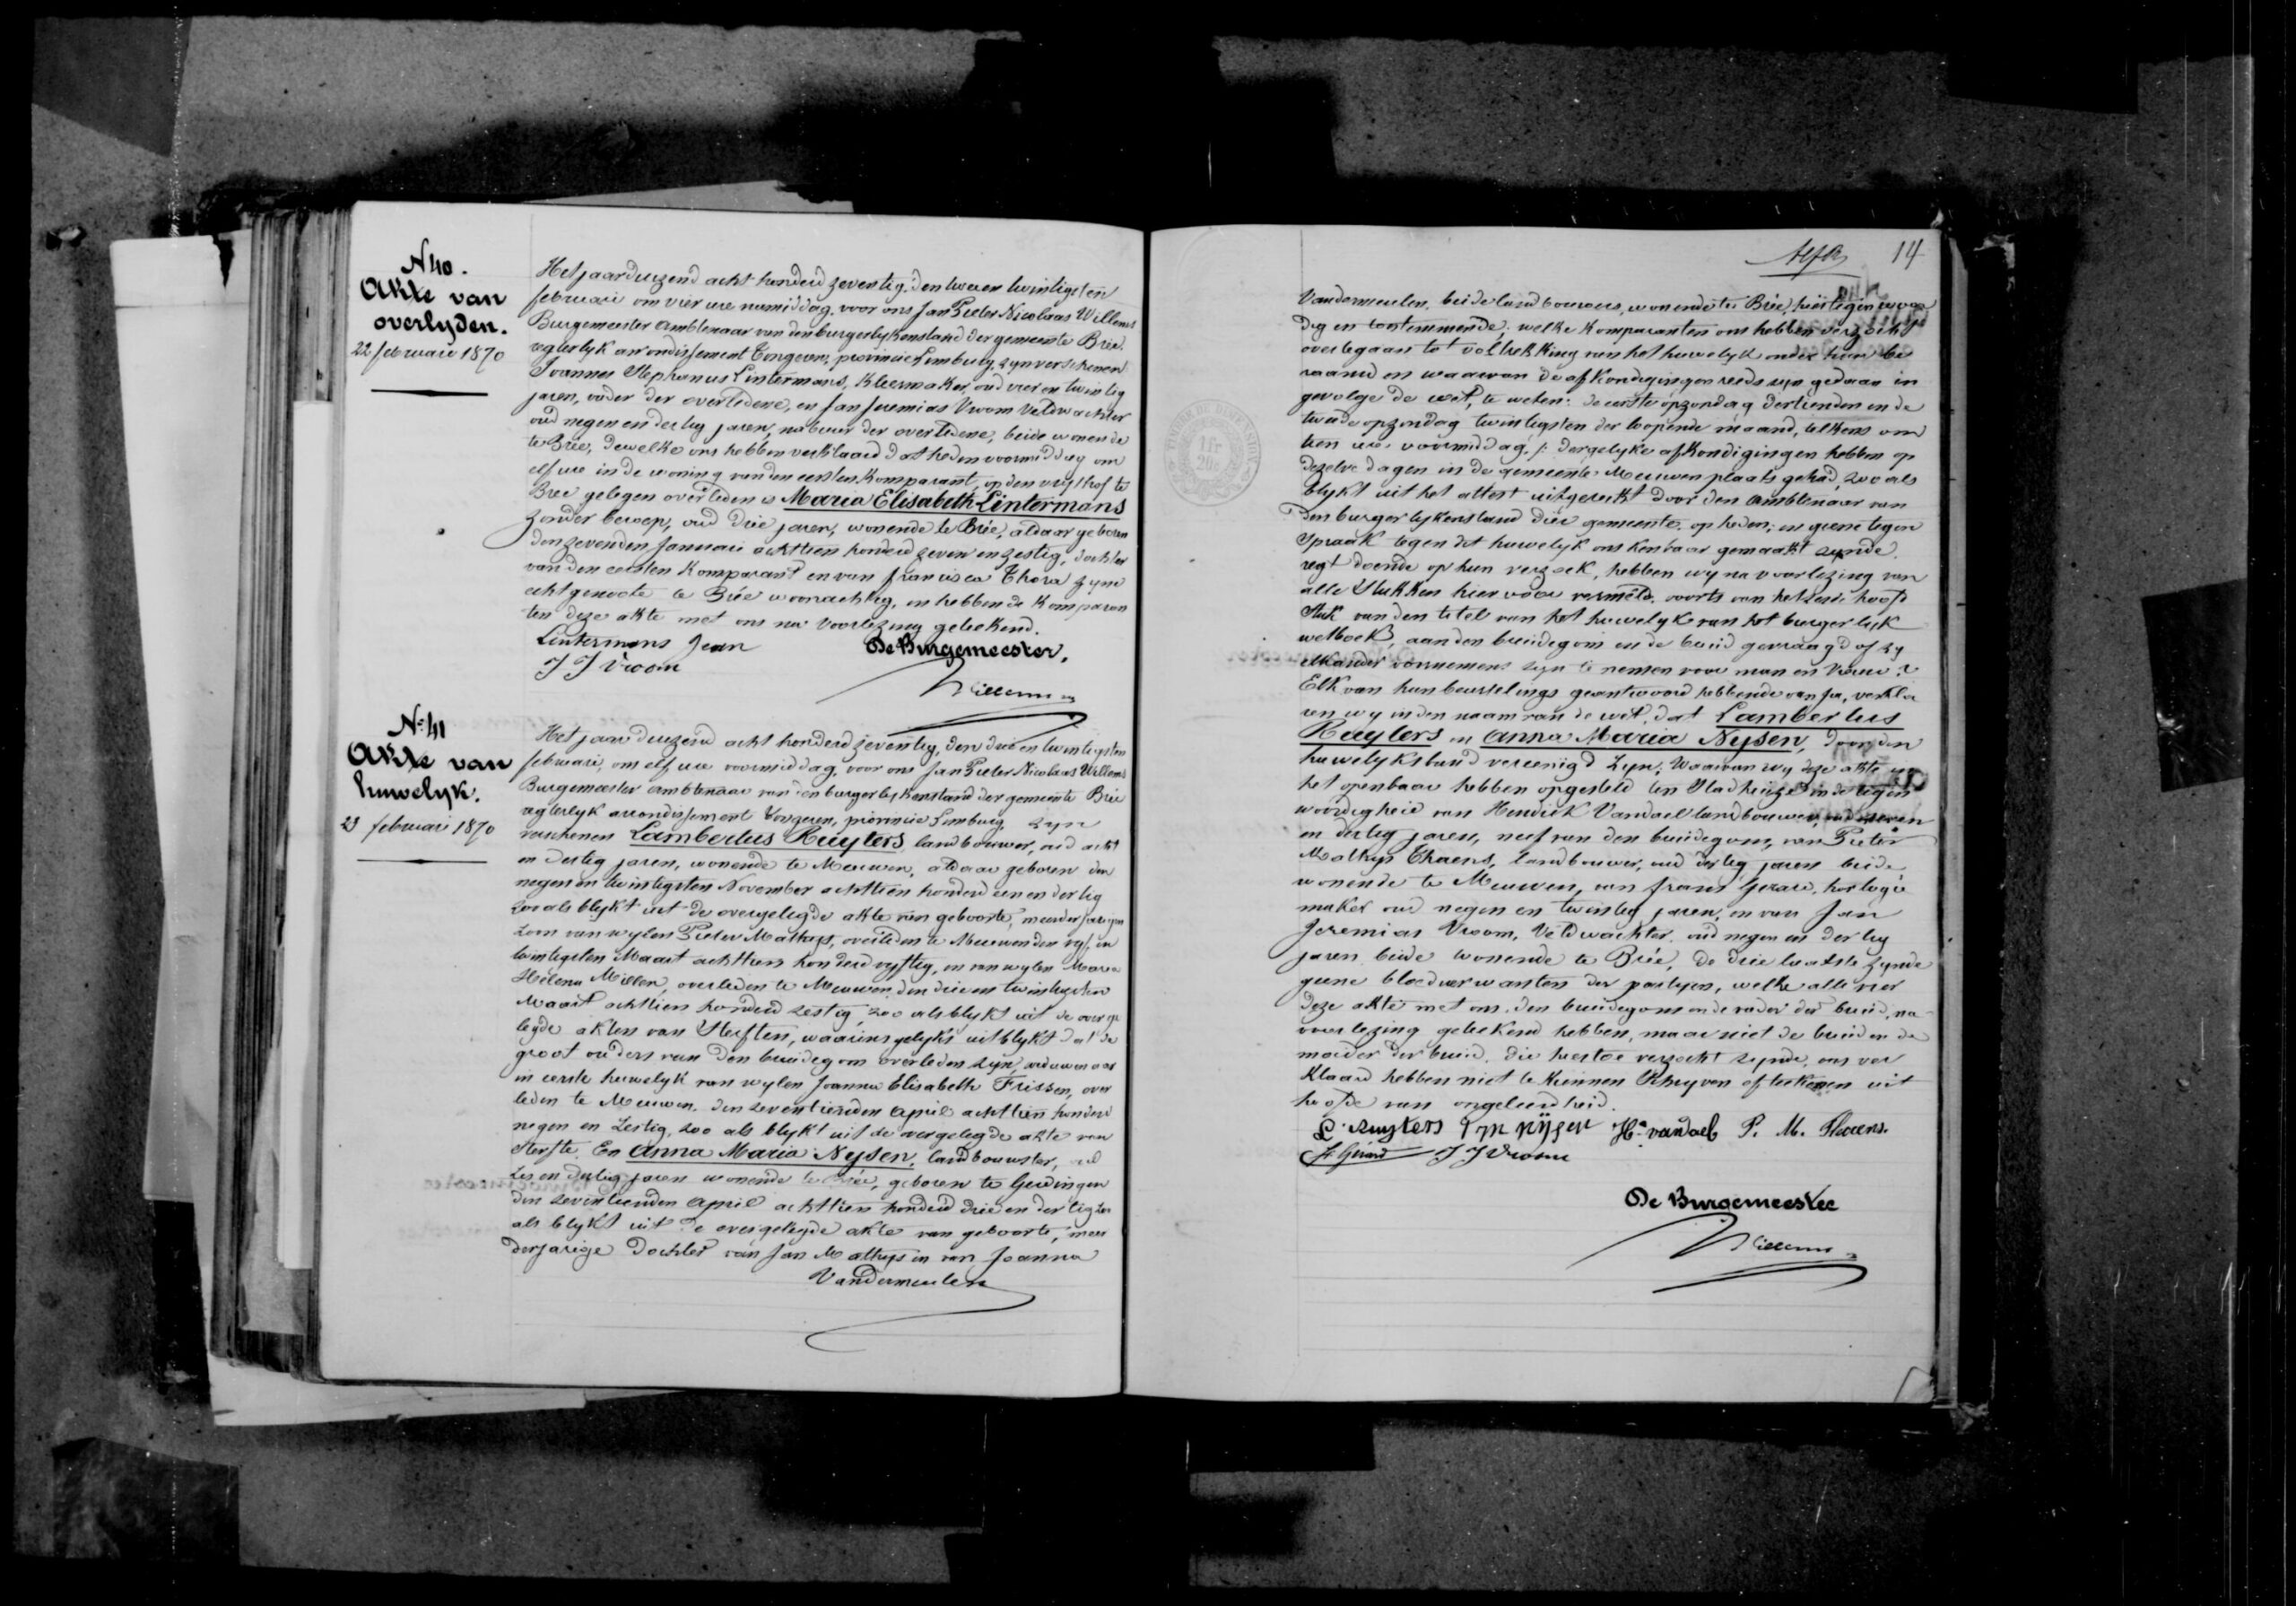 N 40.
Akte van
overlyden.
22 februari 1870
Het jaar duizend acht honderd zeventig, den twee en twintigsten
februari om vier ure namiddag, voor ons Jan Pieter Nicolaas Willems
Burgemeester Ambtenaar van den burgerlyken stand der gemeente Brée,
regterlyk arrondissement Tongeren, provincie Limburg, zyn verschenen
Joannes Stephanus Lintermans, kleermaker, oud vier en twintig
jaren, vader der overledene, en Jan Jeremias Vroom Veldwachter
oud negen en dertig jaren, nabuur der overledene, beide wonende
te Brée, dewelke ons hebben verklaard dat heden voormiddag om
elf ure in de woning van den eersten komparant, op den vrythof te
Brée gelegen overleden is Maria Elisabeth Lintermans
zonder beroep, oud drie jaren, wonende te Brée, aldaar geboren
den zevenden Januari achttien honderd zeven en zestig, dochter
van den eersten komparant en van Francisca Thora zyne
echtgenoote te Brée woonachtig, en hebben de komparan
ten deze akte met ons na voorlezing geteekend.
Lintermans Jean
De Burgemeester,
J J Vroom
Willems
N° 41
Akte van
huwelyk.
23 februari 1870
Het jaar duizend acht honderd zeventig, den drie en twintigsten
februari, om elf ure voormiddag, voor ons Jan Pieter Nicolaas Willems
Burgemeester Ambtenaar van den burgerlyken stand der gemeente Brée
regterlyk arrondissement Tongeren, provincie Limburg, zyn
verschenen Lambertus Ruyters, landbouwer, oud acht
en dertig jaren, wonende te Meeuwen, aldaar geboren den
negen en twintigsten November achttien honderd een en dertig
zoo als blykt uit de overgelegde akte van geboorte, meerderjarigen
zoon van wylen Pieter Mathys, overleden te Meeuwen den vyf en
twintigsten Maart achttien honderd vyftig, en van wylen Maria
Helena Millen, overleden te Meeuwen den drie en twintigsten
Maart achttien honderd zestig zoo als blykt uit de overge
legde akten van Sterften, waaruit insgelyks uitblykt dat de
groot ouders van den bruidegom overleden zyn, weduwenaar
in eerste huwelyk van wylen Joanna Elisabeth Frissen, over
leden te Meeuwen, den zeventienden April achttien honderd
negen en zestig, zoo als blykt uit de overgelegde akte van
sterfte. En Anna Maria Nysen, landbouwster, oud
zes en dertig jaren wonende te Brée, geboren te Gerdingen
den zeventienden April achttien honderd drie en dertig zoo
als blykt uit de overgelegde akte van geboorte, meer
derjarige dochter van Jan Mathys en van Joanna
Vandermeulen
14
Vandermeulen, beide landbouwers, wonende te Brée, hier tegenwoor
dig en toestemmende; welke komparanten ons hebben verzocht
overtegaan tot voltrekking van het huwelyk onder hun be
raamd en waarvan de afkondigingen reeds zyn gedaan in
gevolge de wet, te weten: de eerste op zondag dertienden en de
tweede op zondag twintigsten der loopende maand, telkens om
tien ure voormiddag; dergelyke afkondigingen hebben op
dezelve dagen in de gemeente Meeuwen plaats gehad, zoo als
blykt uit het attest uitgereikt door den Ambtenaar van
den burgerlyken stand dier gemeente, op heden; en geene tegen
spraak tegen dit huwelyk ons kenbaar gemaakt zynde.
regt doende op hun verzoek, hebben wy na voorlezing van
alle stukken hier voor vermeld, voorts van het zesde hoofd
stuk van den titel van het huwelyk van het burgerlyk
wetboek, aan den bruidegom en de bruid gevraagd of zy
elkander voornemens zyn te nemen voor man en vrouw?
Elk van hun beurtelings geantwoord hebbende van ja, verkla
ren wy in den naam van de wet, dat Lambertus
Ruyters en Anna Maria Nysen, door den
huwelyksband vereenigd zyn; Waarvan wy deze akte in
het openbaar hebben opgesteld ten Stadhuize in de tegen
woordigheid van Hendrik Vandael landbouwer, oud zeven
en dertig jaren, neef van den bruidegom, van Pieter
Mathys Thaens, landbouwer, oud dertig jaren beide
wonende te Meeuwen, van Frans Gerard, horlogie
maker oud negen en twintig jaren, en van Jan
Jeremias Vroom, Veldwachter, oud negen en dertig
jaren beide wonende te Brée, de drie laatste zynde
geene bloedverwanten der partyen, welke alle vier
deze akte met ons, den bruidegom en de vader der bruid, na
voorlezing geteekend hebben, maar niet de bruid en de
moeder der bruid, die hiertoe verzocht zynde, ons ver
klaard hebben niet te kunnen schryven of teekenen uit
hoofde van ongeleerdheid.
L. Ruyters J M Nijsen Hk vandael P. M. Thaens.
F. Gerard J J Vroom
De Burgemeester
Willems